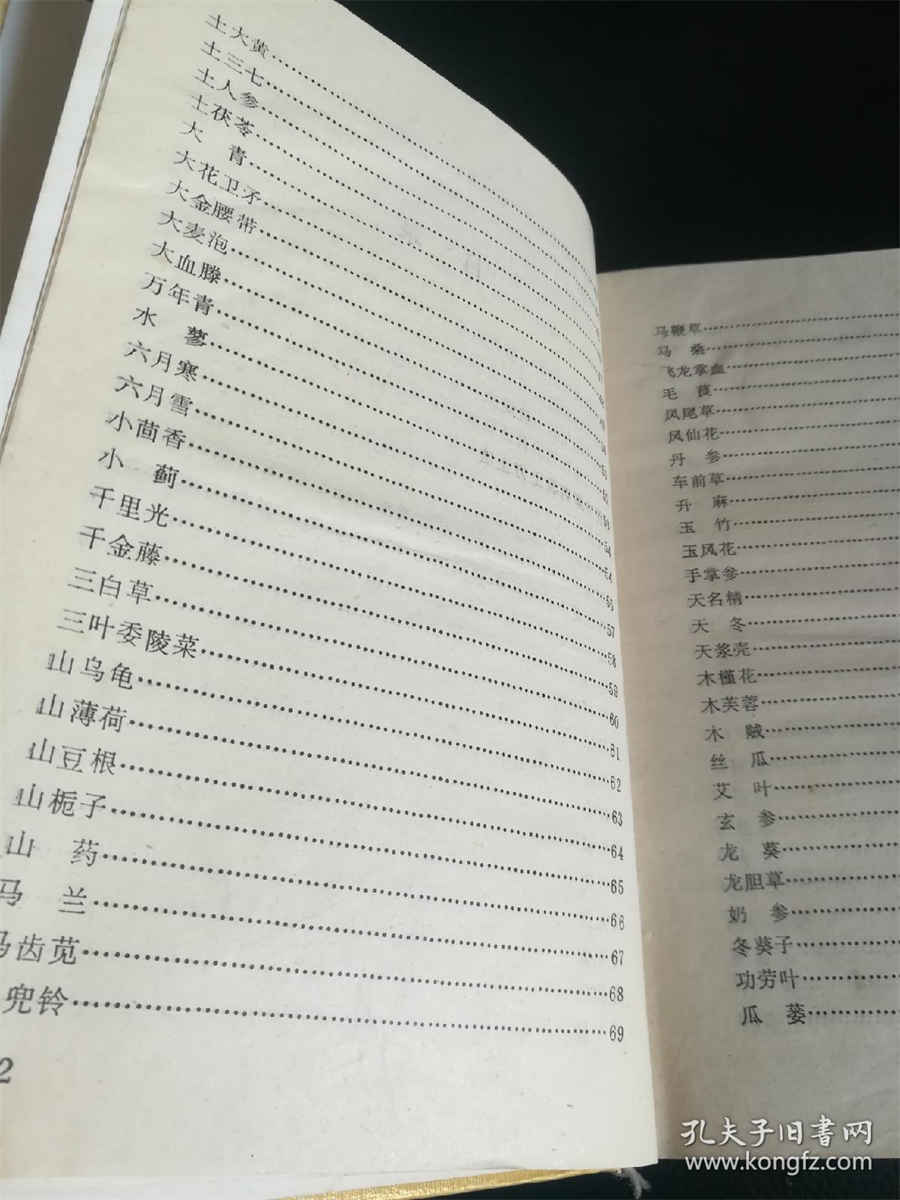 土大黄
土三七
土人参
土茯苓
大 青
大花卫矛
大金腰带
大麦泡
大血滕
万年青
水 蓼
六月寒
六月雪
小茴香
小 蓟
千里光
千金藤
三白草
三叶委陵菜
山乌龟
山薄荷
山豆根
山栀子
山 药
马 兰
马齿苋
兜铃
54
57
58
59
60
61
62
63
64
65
66
67
68
69
2
马鞭草
马 桑
飞龙掌血
毛 莨
凤尾草
凤仙花
丹 参
车前草
升 麻
玉 竹
玉凤花
手掌参
天名精
天 冬
天浆壳
木槿花
木芙蓉
木 贼
丝 瓜
艾 叶
玄 参
龙 葵
龙胆草
奶 参
冬葵子
功劳叶
瓜 蒌
孔夫子旧書网
www.kongfz.com